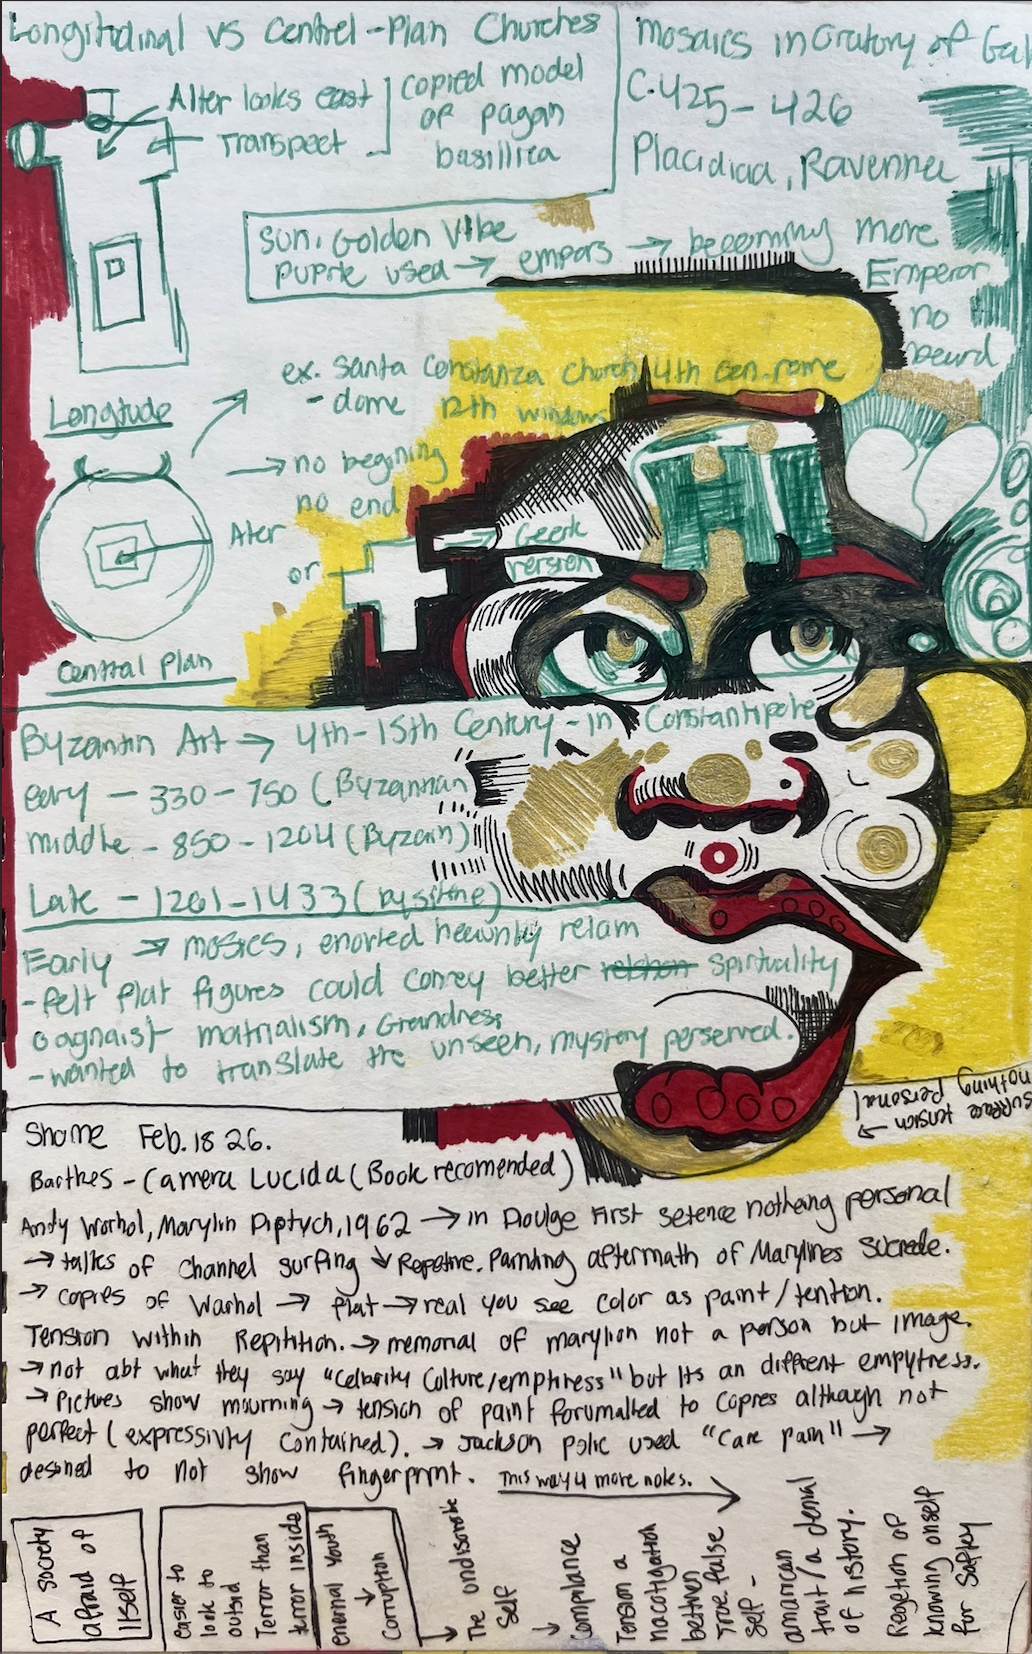 Longitidinal vs Centrel-Plan Churches
Alter looks east
Transpeet
copied model
of pagan
basillica
Mosaics in Oratory of Gal
C.425-426
Placidiaa, Ravenna
Sun, Golden Vibe
puprle used → empors → becomming more
Emperor
no
beard
Longtude
ex. Santa Constanza church 4th cen. rome
- dome 12th windows
→ no begining
no end
Ater
or
Geerk
version
Central Plan
Byzantin Art → 4th-15th Century - in Constantipole
eary - 330-750 (Byzannan
middle - 850-1204 (Byzain)
Late - 1261-1433 (Bysitine)
Early → mosics, enorted heavnly relam
- felt flat figures could convey better spirtuality
oagnaist matrialism, Grandness
- wanted to translate the unseen, mystery perserved.
surface tension →
nothing personal
Shome Feb. 18 26.
Barthes - Camera Lucida (Book recomended)
Andy Warhol, Marylin Diptych, 1962 → in Doulge First setence nothing personal
→ talks of channel surfing ↓ Repetive. Painting aftermath of Marylines sucide.
→ copies of Warhol → flat → real you see color as paint/tention.
Tension within Repitition. → memorial of marylion not a person but image.
→ not abt what they say "Celbarity Culture/emptiness" but Its an diffrent empytness.
→ Pictures show mourning → tension of paint forumalted to copres although not
perfect (expressivity contained). → Jackson polic used "Care pam" →
desined to not show fingerprint. This way 4 more notes. →
A society
afraid of
itself
easier to
look to
outsid
Terror than
terror inside
enternal youth
↓
Corruption
→ The undisorable
self
→ Compliance
Tension a
nacotigation
between
True false
self -
amarican
trait / a denial
of history.
Regetion of
knowing onself
for safley